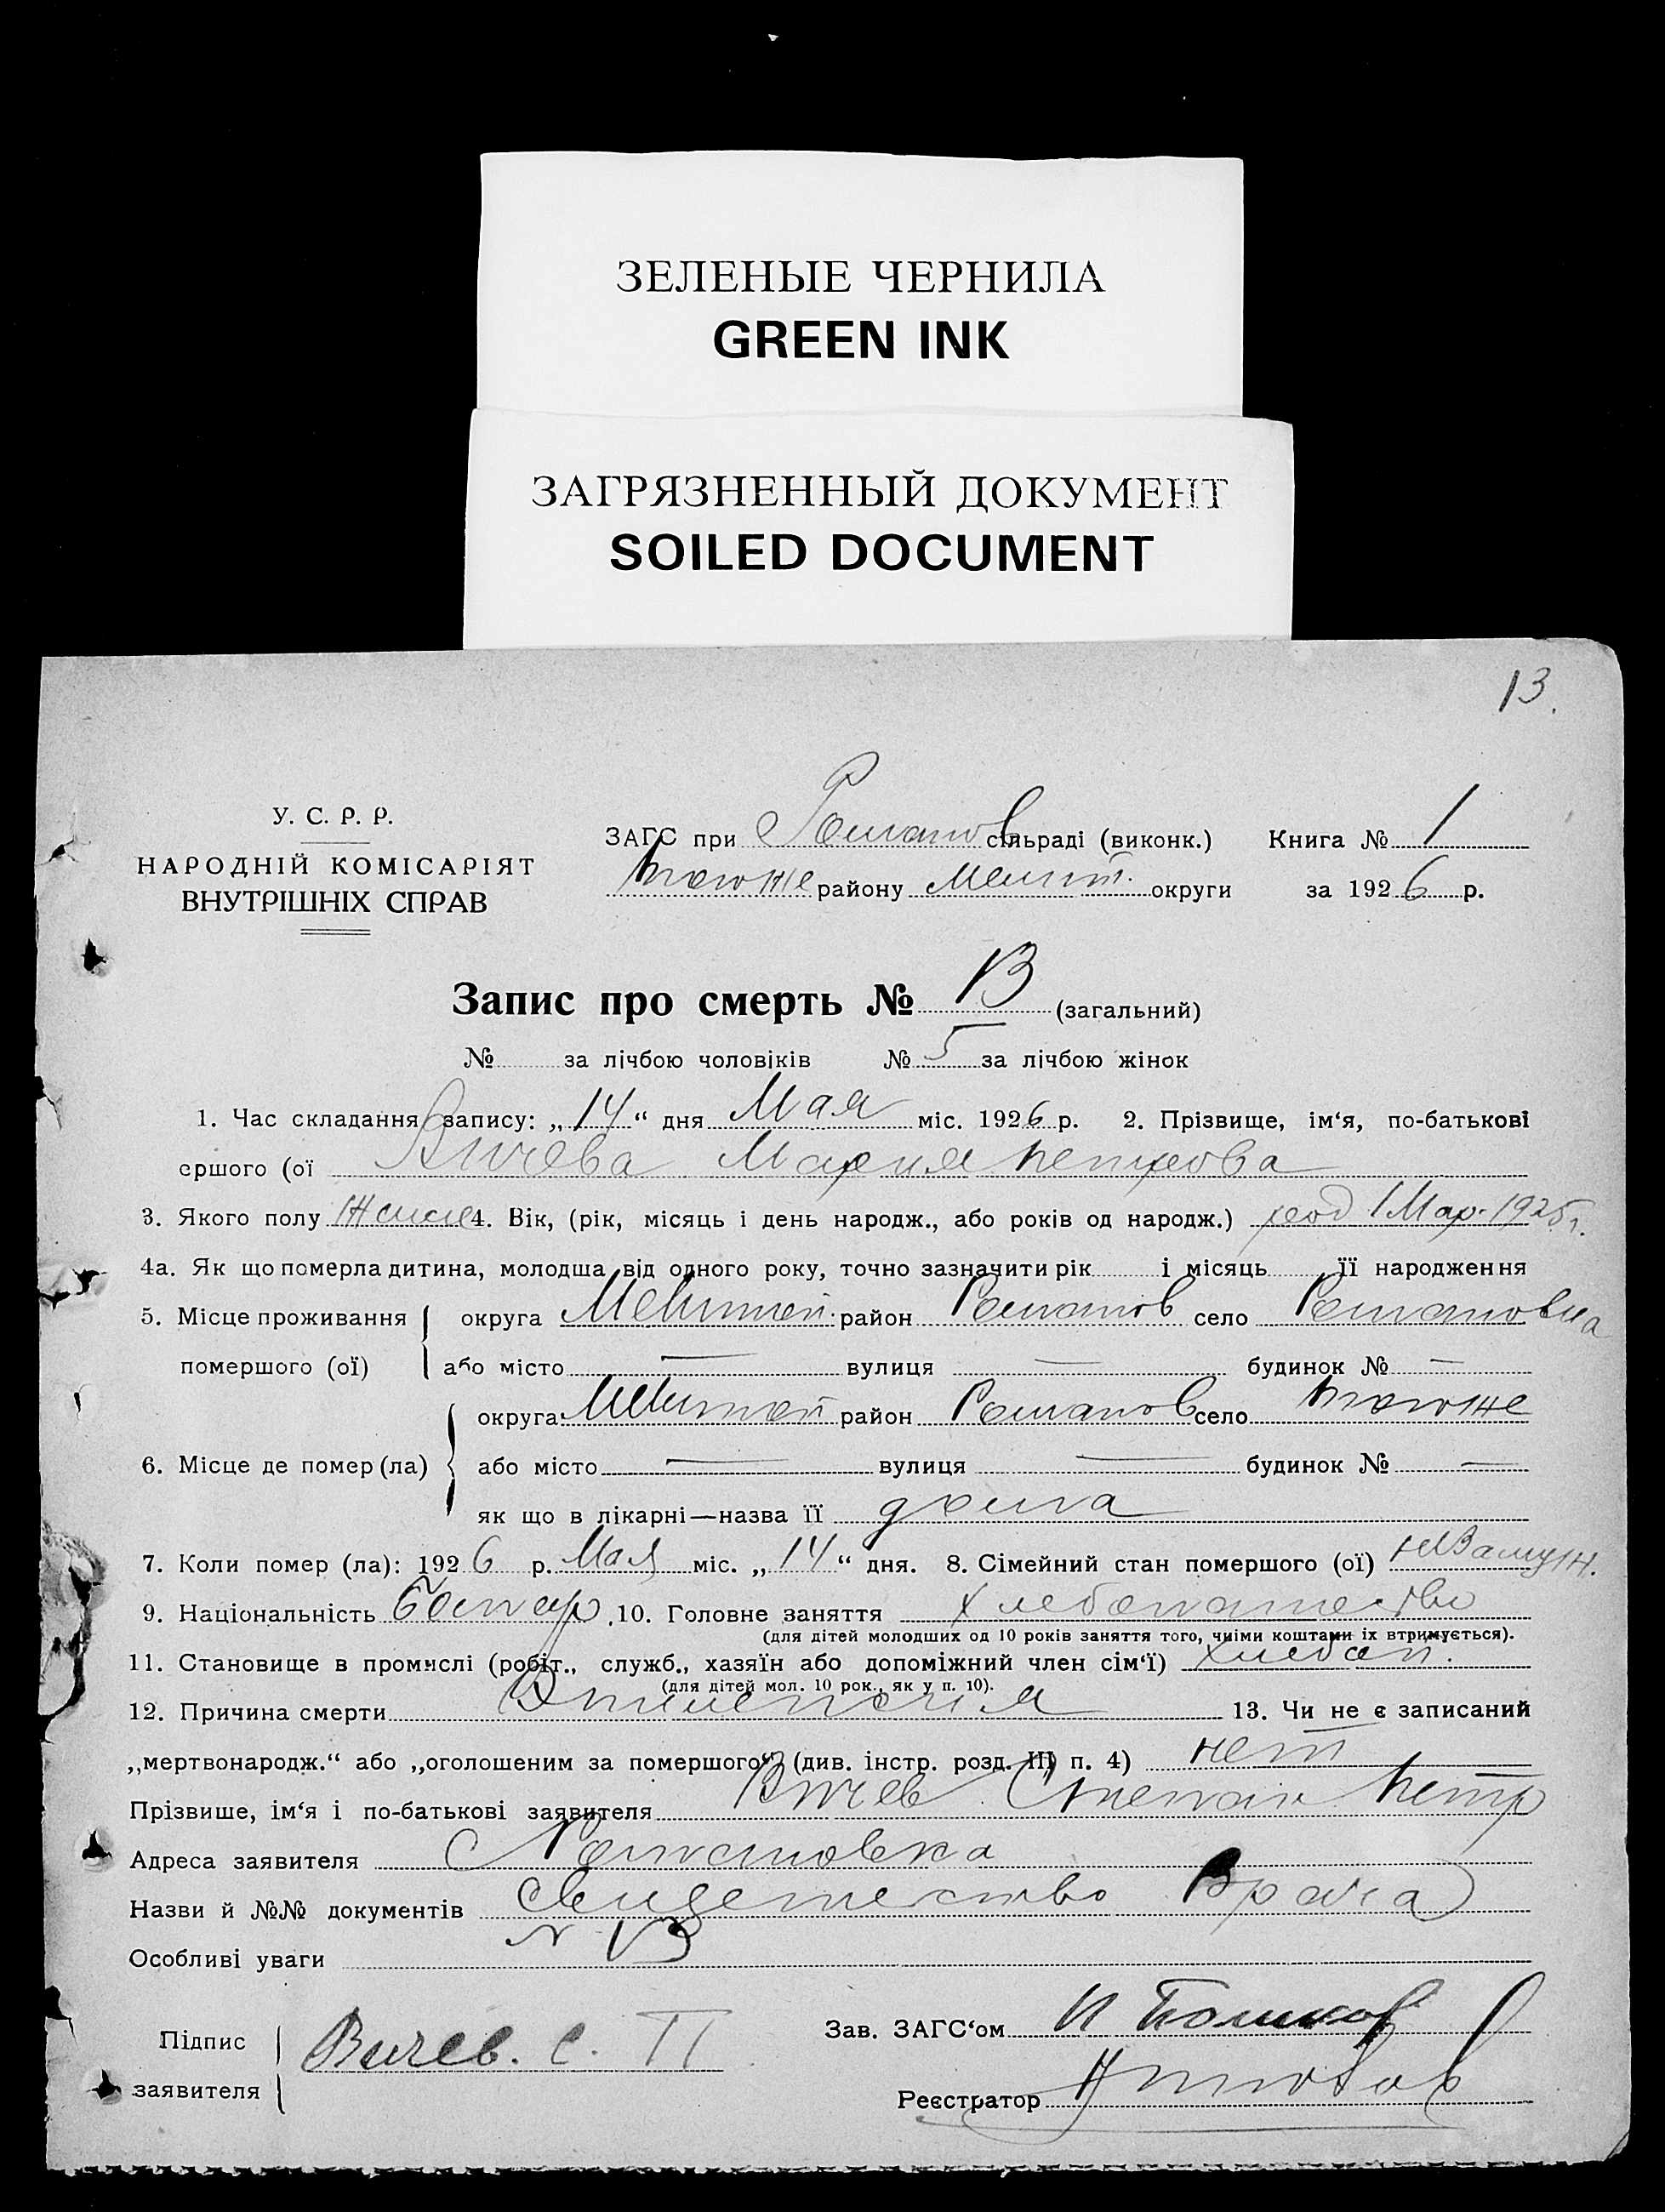 ЗЕЛЕНЫЕ ЧЕРНИЛА
GREEN INK
ЗАГРЯЗНЕННЫЙ ДОКУМЕНТ
SOILED DOCUMENT
13.
У. С. Р. Р.
НАРОДНІЙ КОМІСАРІЯТ
ВНУТРІШНІХ СПРАВ
ЗАГС при Романов сільраді (виконк.) Книга № 1
тоже району Мелит. округи за 1926 р.
Запис про смерть № 13 (загальний)
№ за лічбою чоловіків № 5 за лічбою жінок
1. Час складання запису: „14“ дня Мая міс. 1926 р. 2. Прізвище, ім‘я, по-батькові
ершого (ої Вичева Мария Петрова
3. Якого полу 4. Вік, (рік, місяць і день народж., або років од народж.) род 1 Мар. 1925 г.
4а. Як що померла дитина, молодша від одного року, точно зазначити рік і місяць її народження
5. Місце проживання округа район Романов село Романовка
помершого (ої) або місто — вулиця — будинок № —
округа: район Романов село тоже
6. Місце де помер (ла) або місто — вулиця — будинок № —
як що в лікарні—назва її дома
7. Коли помер (ла): 1926 р. Мая міс. „14“ дня. 8. Сімейний стан помершого (ої) незамуж.
9. Національність Болгар. 10. Головне заняття хлебопашество
(для дітей молодших од 10 років заняття того, чиїми коштами їх втримується).
11. Становище в промислі (робіт., служб., хазяїн або допоміжний член сім‘ї) хлебоп.
(для дітей мол. 10 рок., як у п. 10).
12. Причина смерти Эпилепсия 13. Чи не є записаний
„мертвонародж.“ або „оголошеним за помершого“ (див. інстр. розд. III п. 4) нет
Прізвище, ім‘я і по-батькові заявителя Вичев Степан Петр
Адреса заявителя С Романовка
Назви й №№ документів Свидетельство Врача
Особливі уваги N 13
Підпис заявителя Вичев. С. П
Зав. ЗАГС‘ом И
Реєстратор